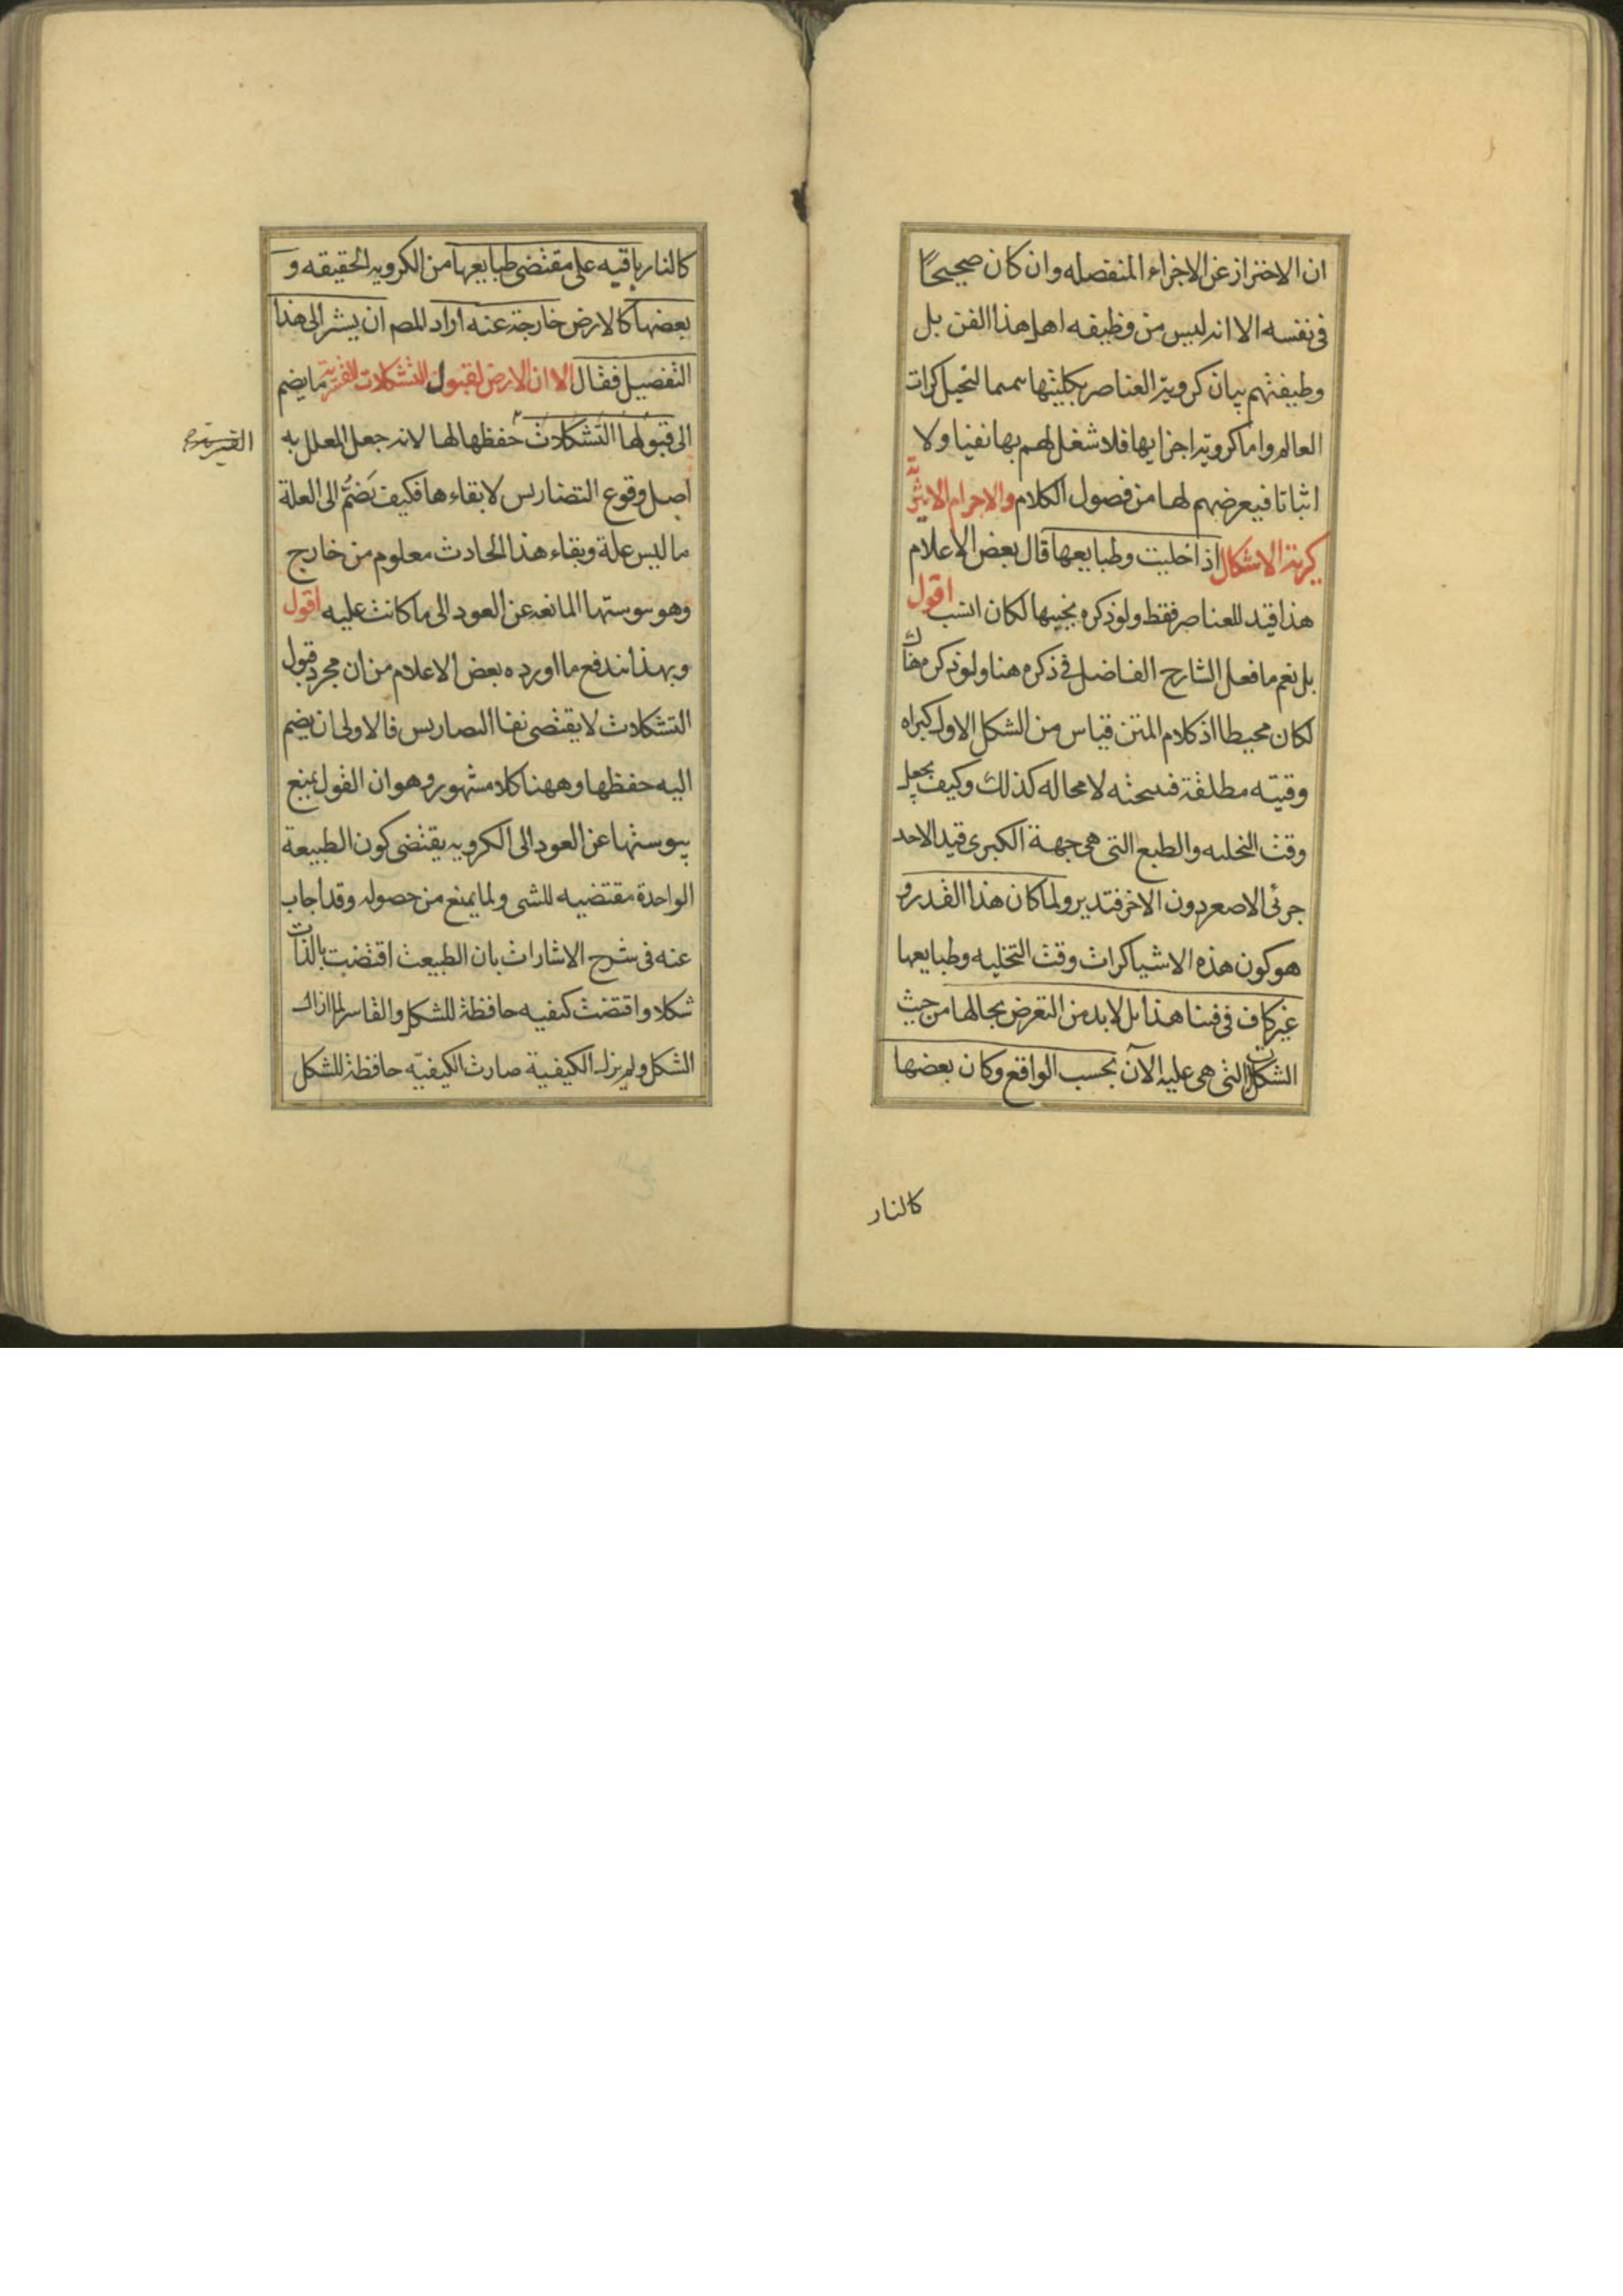 ان الاحتراز عن الاجزاء المنفصله وان كان صحيحًا
فى نفسه الا انه ليس من وظيفه اهل هذا الفن بل
وظيفتهم بيان كروية العناصر بكليتها متمما لتخيل كرات
العالم واما كروية اجزايها فلا شغل لهم بها نفيا ولا
اثباتا فيعرضهم لها من فصول الكلام والاجرام الاثيرية
كرية الاشكال اذا خليت وطبايعها قال بعض الاعلام
هذا قيد للعناصر فقط ولو ذكره بجنبها لكان انسب اقول
بل نعم ما فعل الشارح الفاضل فى ذكره هنا ولو ذكره هناك
لكان محيطا اذ كلام المتن قياس من الشكل الاول كبراه
وقتيه مطلقة فنتيجته لا محاله كذلك وكيف يجعل
وقت التخليه والطبع التى هى جهة الكبرى قيد الاحد
جزئى الاصغر دون الاخر فتدبر ولما كان هذا القدر و
هو كون هذه الاشيا كرات وقت التخليه وطبايعها
غير كاف فى فننا هذا بل لابد من التعرض بحالها من حيث
الشكل التى هى عليه الآن بحسب الواقع وكان بعضها
كالنار
كالنار باقيه على مقتضى طبايعها من الكرويه الحقيقه و
بعضها كالارض خارجة عنه اراد المص ان يشير الى هذا
التفصيل فقال الا ان الارض لقبول التشكلات القسرية ما يضم
الى قبولها التشكلات حفظها لها لانه جعل المعلل به
القسرية
اصل وقوع التضاريس لا بقاءها فكيف يَضُمّ الى العلة
ما ليس علة وبقاء هذا الحادث معلوم من خارج
وهو يبوستها المانعه عن العود الى ما كانت عليه اقول
وبهذا يندفع ما اورده بعض الاعلام من ان مجرد قبول
التشكلات لا يقتضى بقا التضاريس فالاولى ان يضم
اليه حفظها وههنا كلام مشهور وهو ان القول بمنع
يبوستها عن العود الى الكرويه يقتضى كون الطبيعة
الواحدة مقتضيه للشى ولما يمنع من حصوله وقد اجاب
عنه فى شرح الاشارات بان الطبيعت اقتضت بالذات
شكلا واقتضت كيفيه حافظة للشكل والقاسر لما ازال
الشكل ولم يزل الكيفية صارت الكيفيّه حافظة للشكل